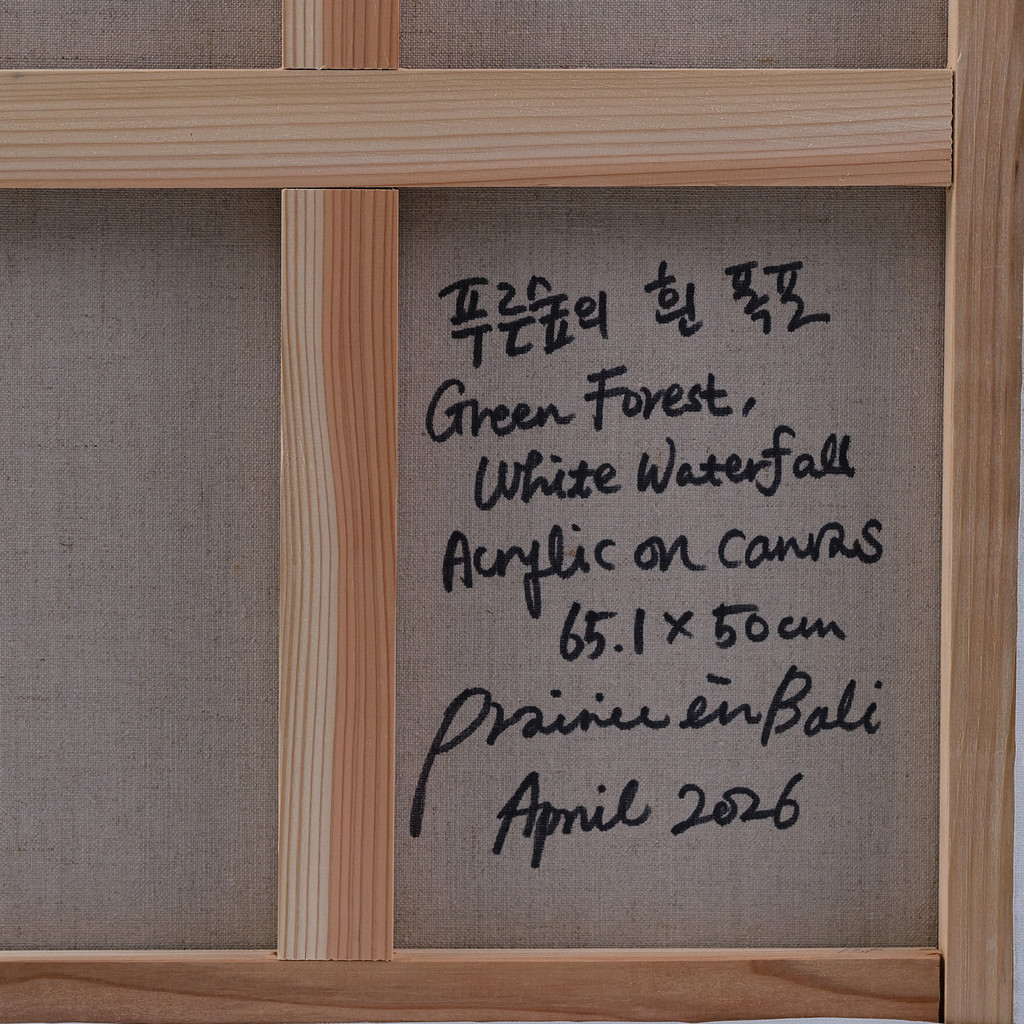 푸른숲의 흰 폭포
Green Forest,
White Waterfall
Acrylic on canvas
65.1 × 50 cm
Prairie en Bali
April 2026